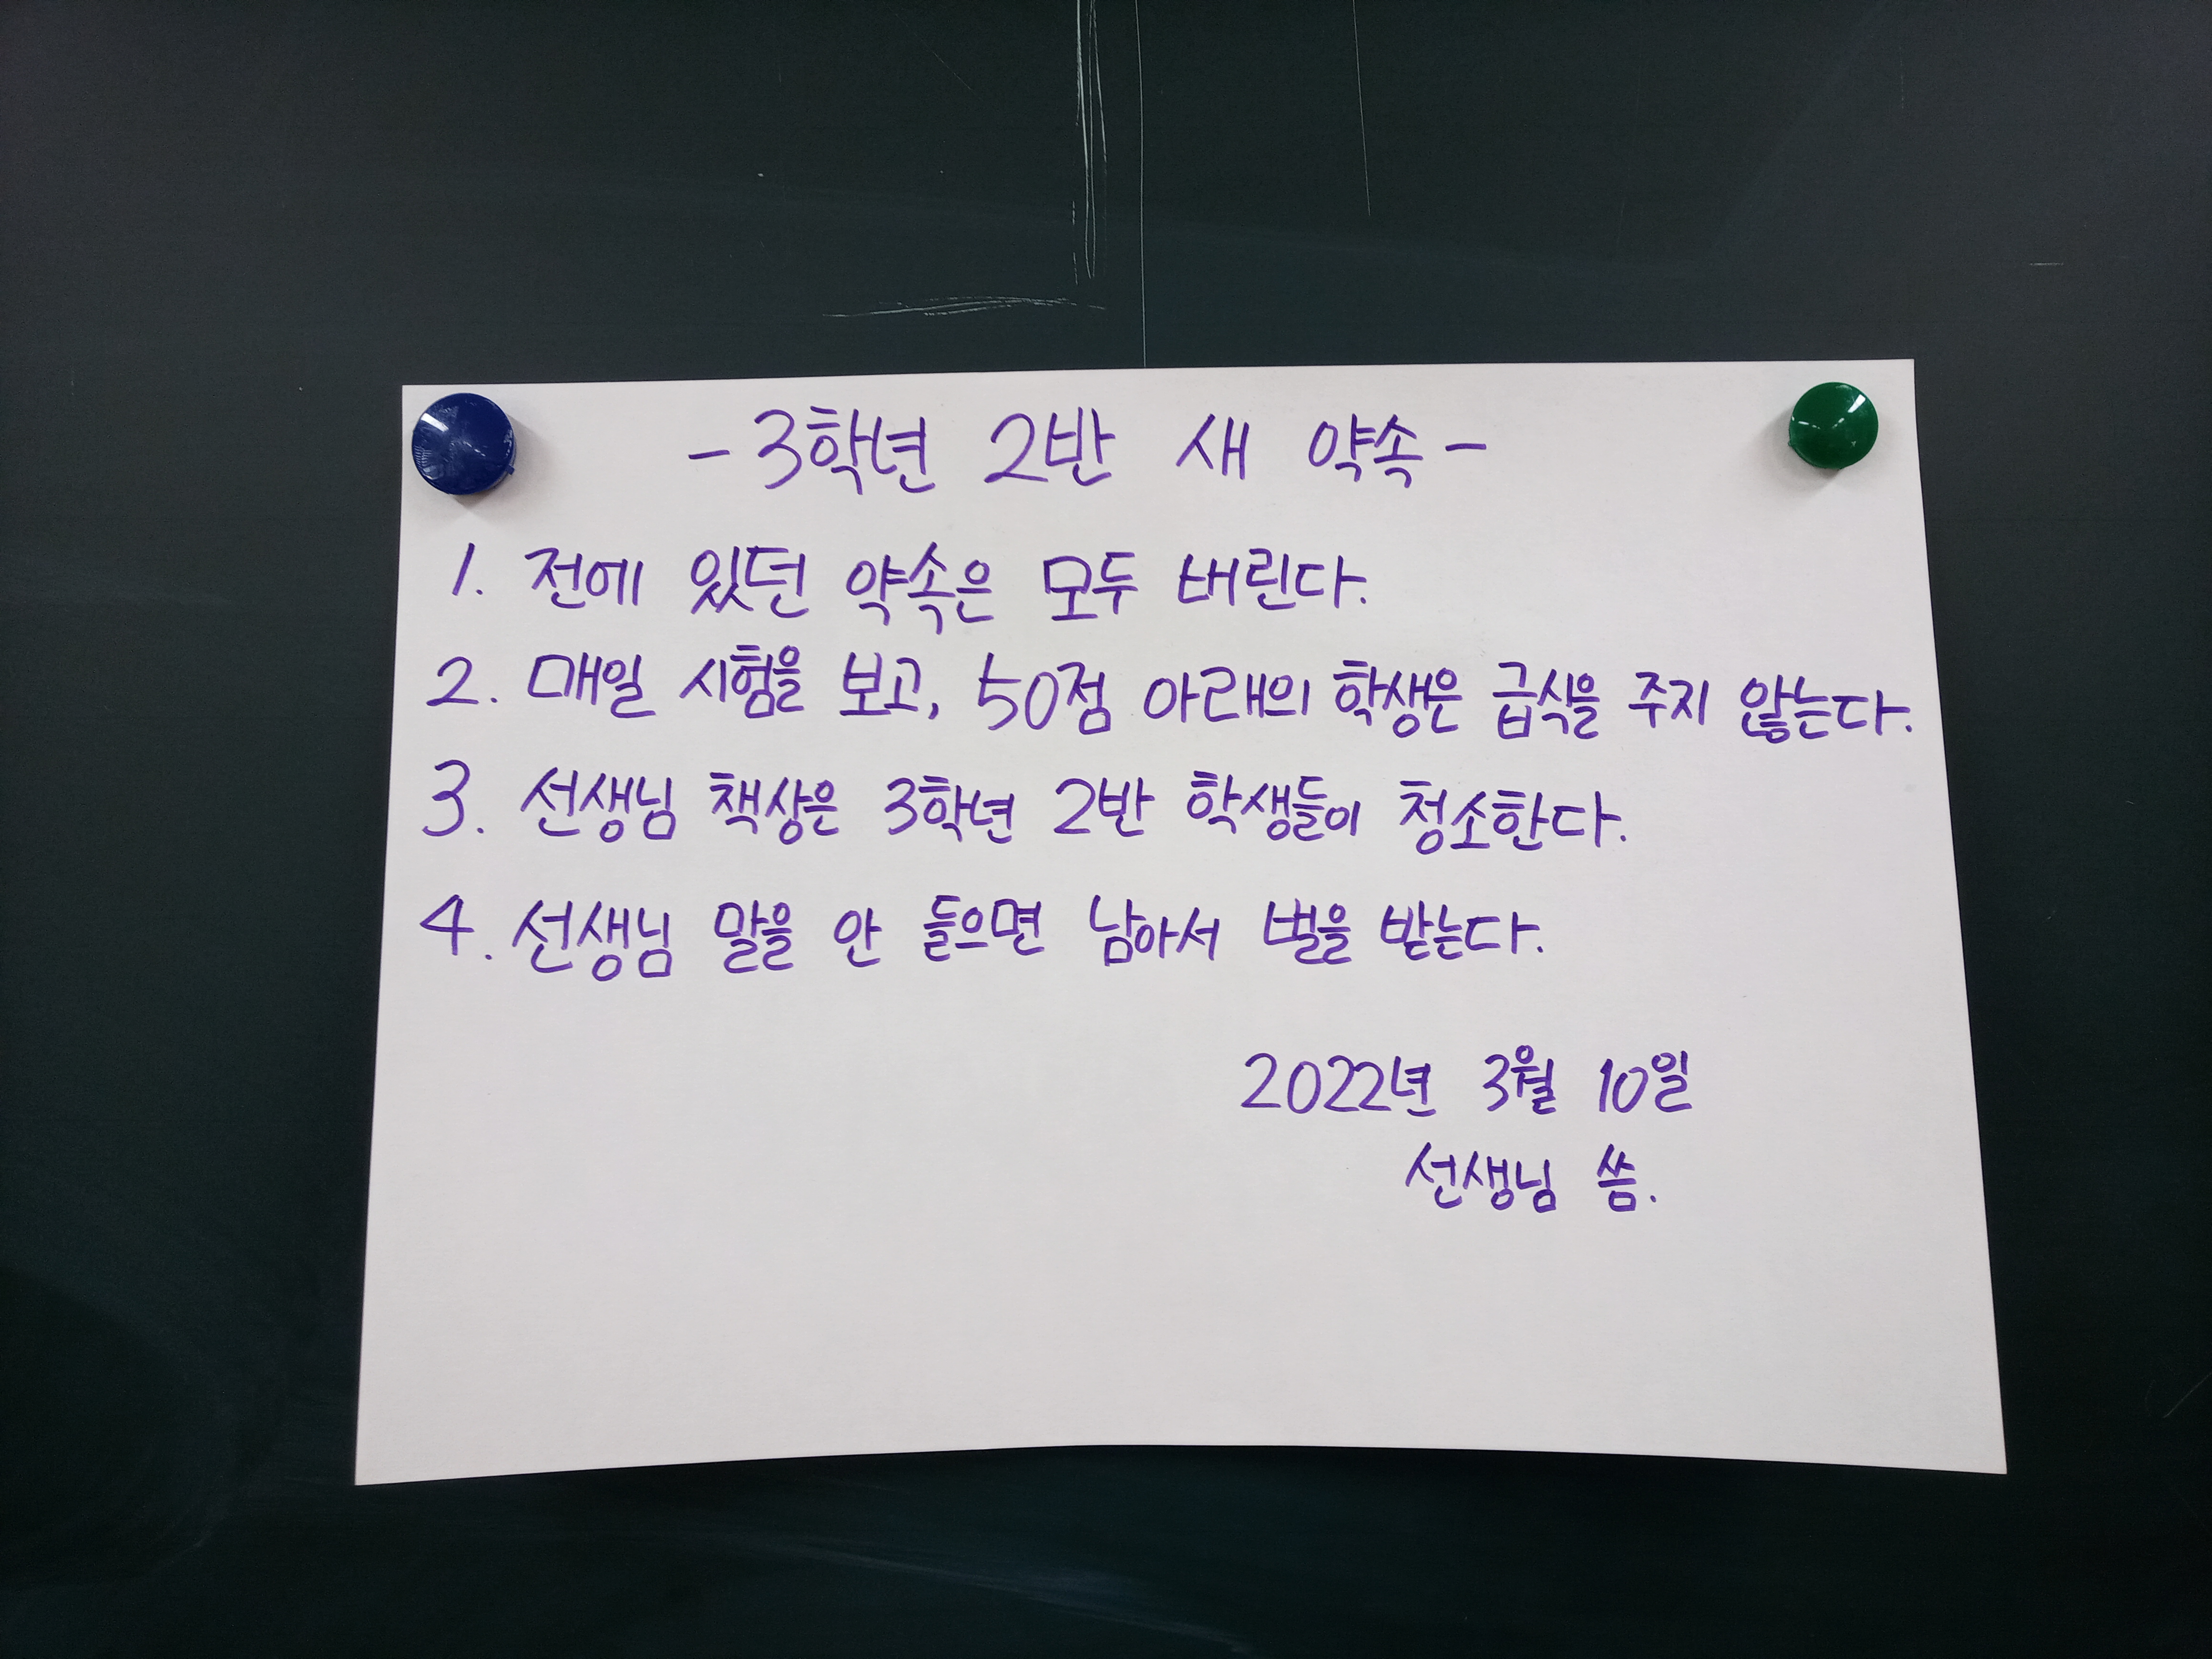 -3학년 2반 새 약속-
1. 전에 있던 약속은 모두 버린다.
2. 매일 시험을 보고, 50점 아래의 학생은 급식을 주지 않는다.
3. 선생님 책상은 3학년 2반 학생들이 청소한다.
4. 선생님 말을 안 들으면 남아서 벌을 받는다.
2022년 3월 10일
선생님 씀.